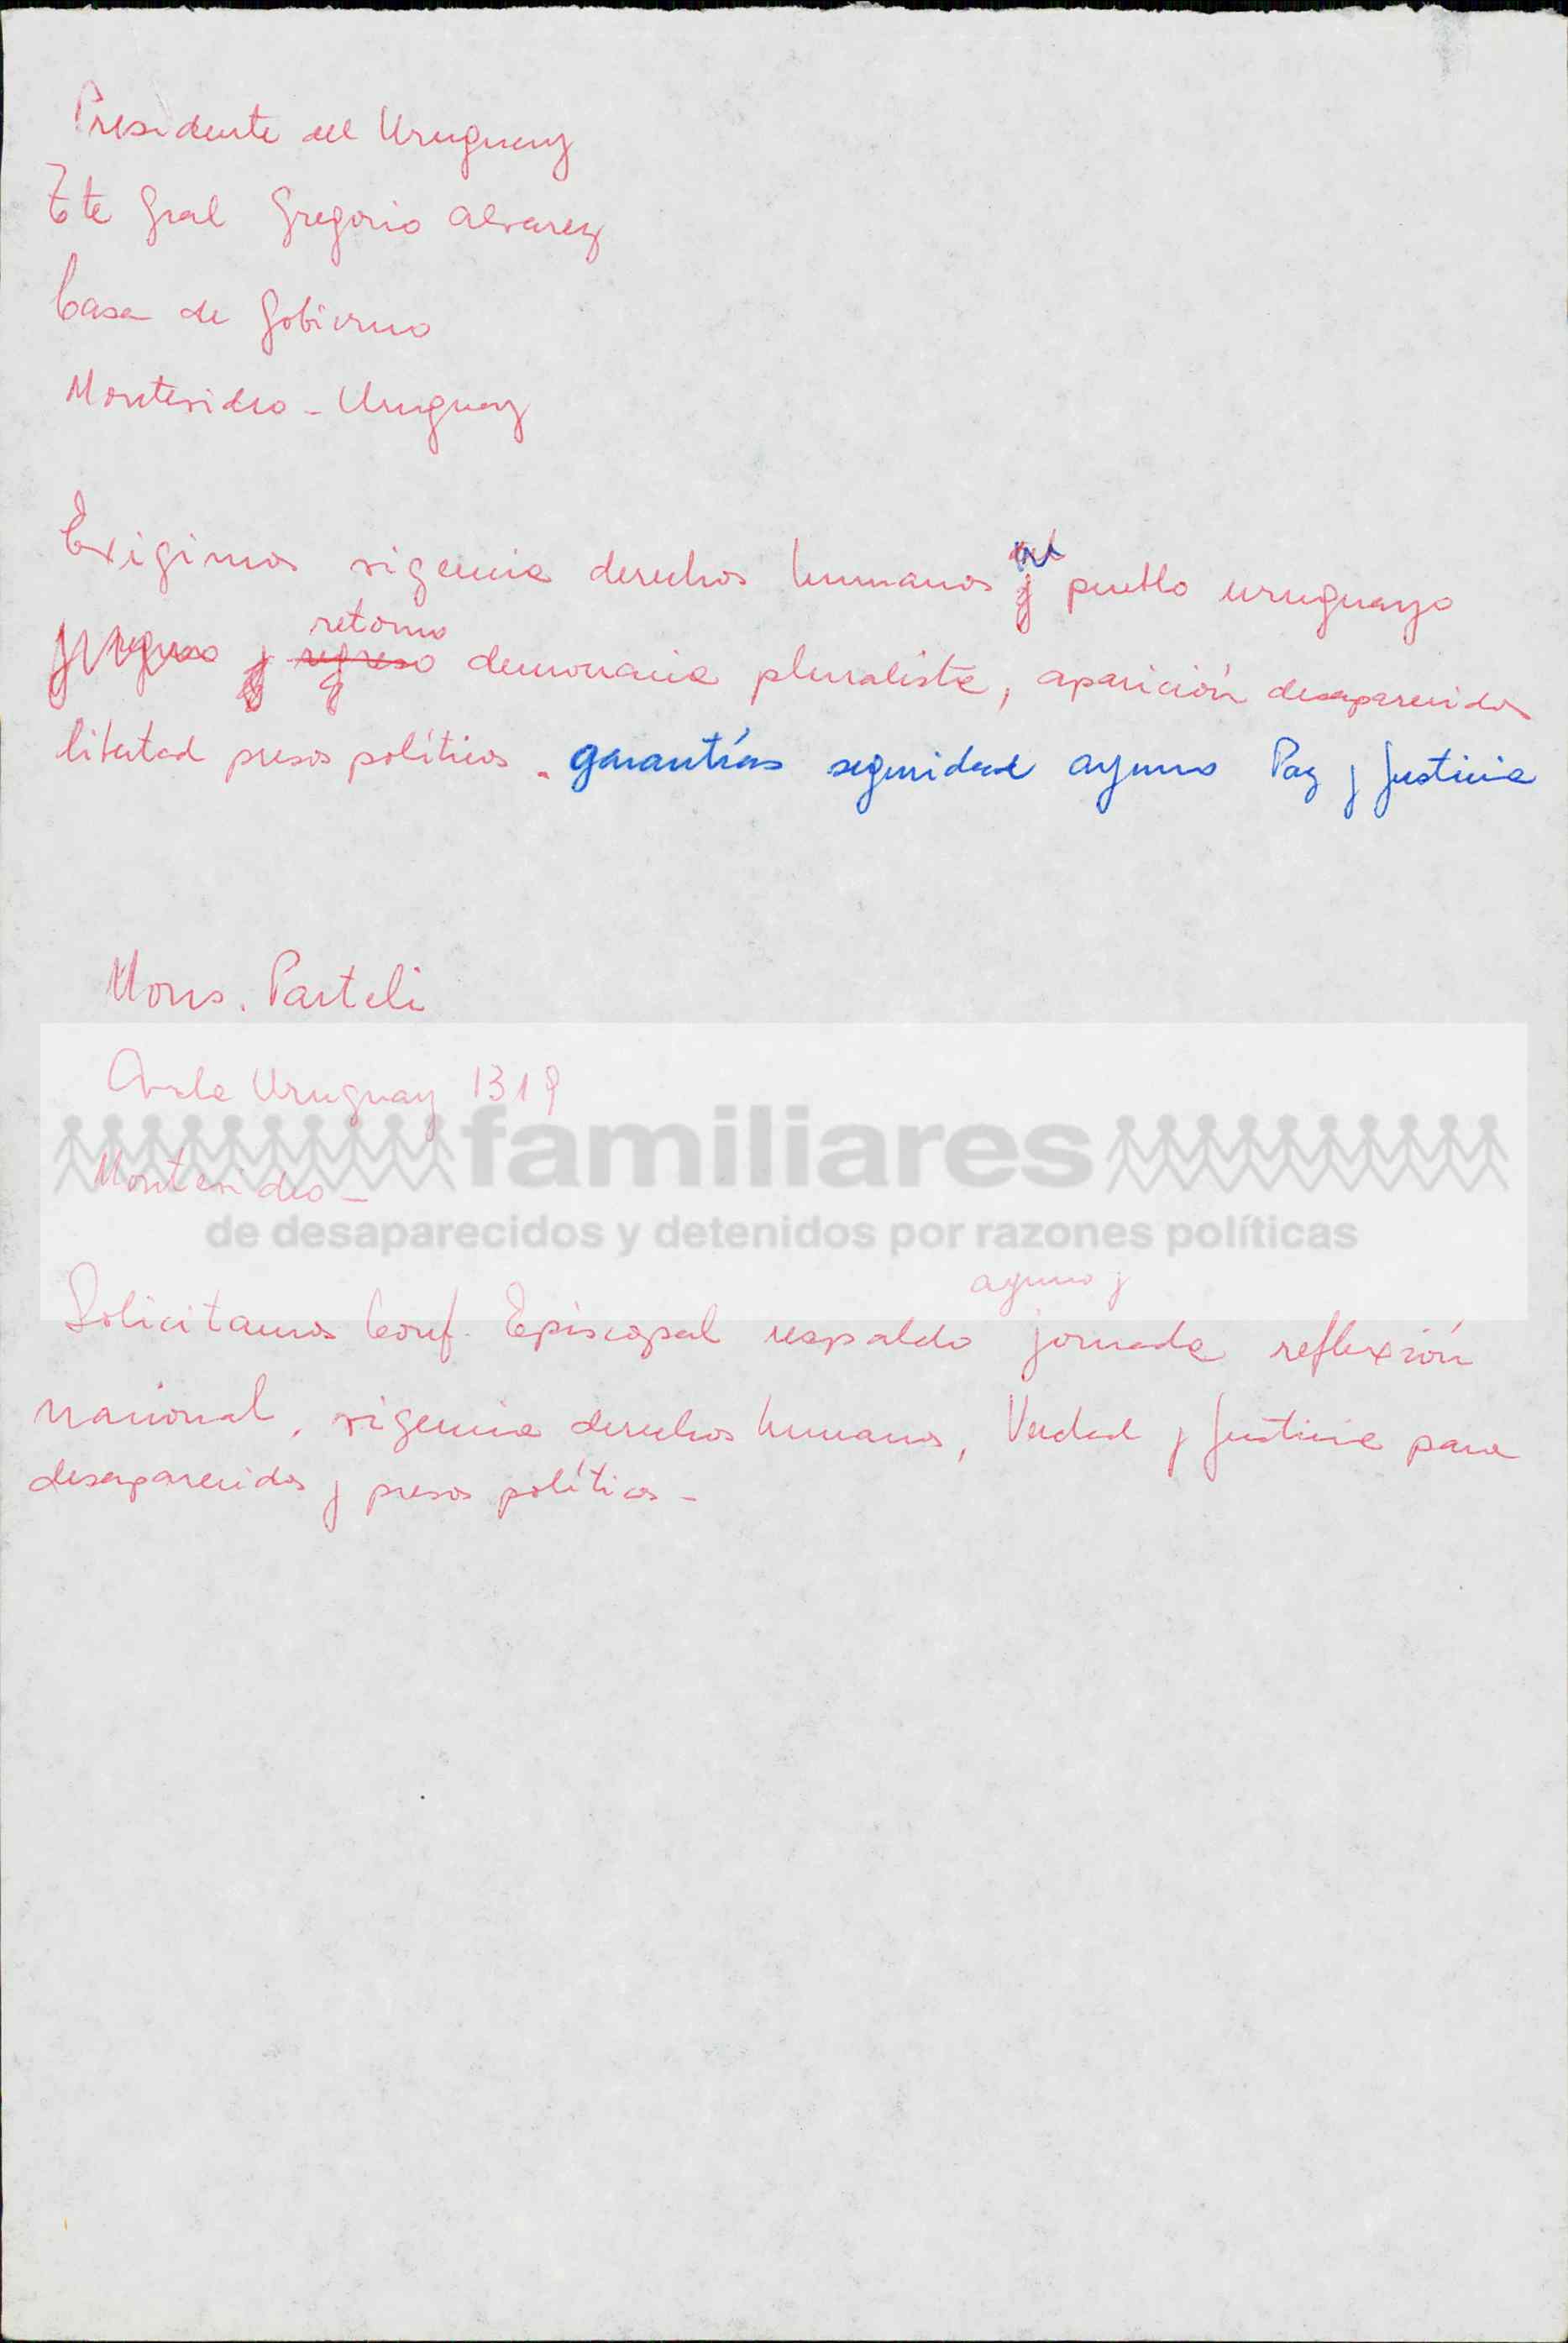 Presidente del Uruguay
Tte Gral Gregorio Alvarez
Casa de Gobierno
Montevideo - Uruguay
Exigimos vigencia derechos humanos del pueblo uruguayo
y regreso y regreso retorno democracia pluralista, aparición desaparecidos
libertad presos políticos. garantías seguridad ayuno Paz y Justicia
Mons. Parteli
Avda Uruguay 1319
familiares
Montevideo -
de desaparecidos y detenidos por razones políticas
ayuno y
Solicitamos Conf. Episcopal respaldo jornada reflexión
nacional, vigencia derechos humanos, Verdad y Justicia para
desaparecidos y presos políticos -